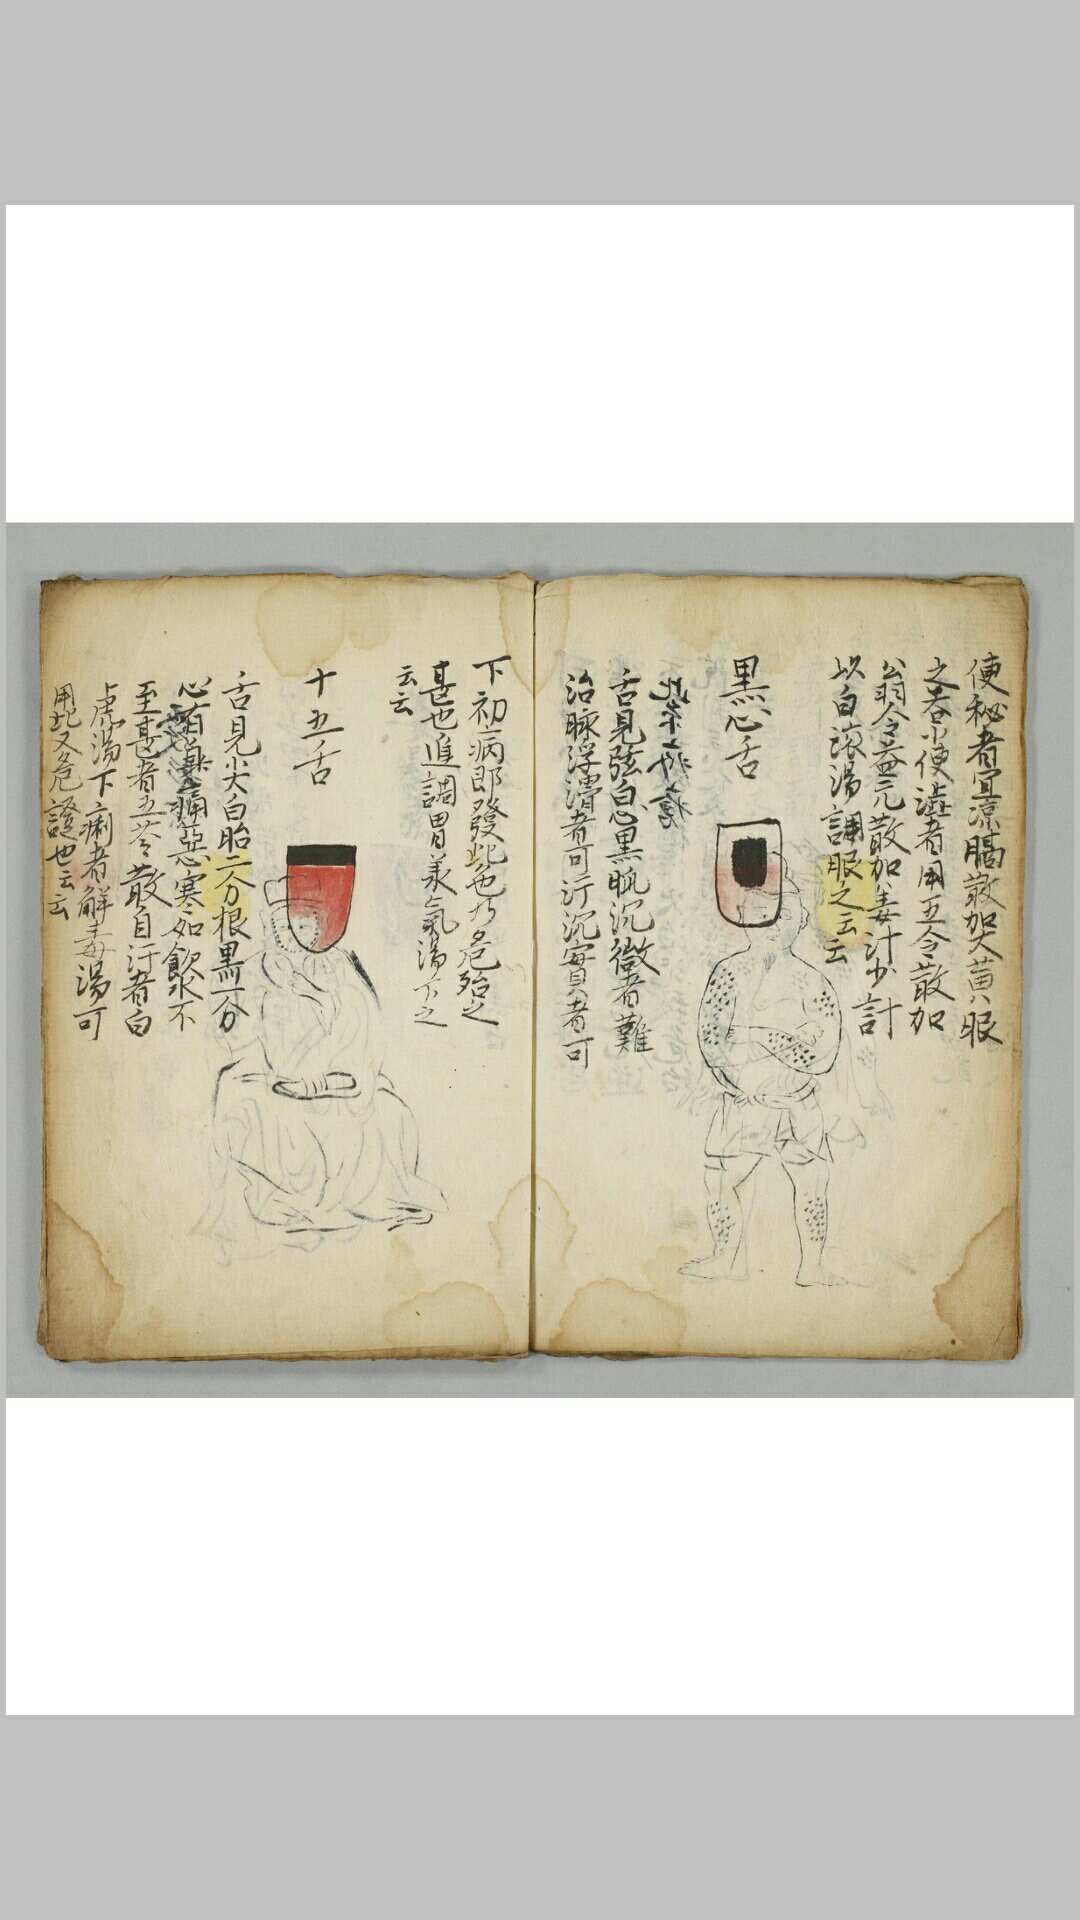 便秘者宜凉膈散加大黄服
之春小便澁者用五令散加
翁令益元散加姜汁少許
以白滚湯調服之云云
黒心舌
舌見弦白心黒脉沉微者難
治脉浮濇者可汗沉實者可
下初病即發此色乃危殆之
甚也進調胃承氣湯下之
云云
十五舌
舌見尖白胎二分根黒一分
心 痛惡寒如飲水不
至甚者五苓散自汗者白
虎湯下痢者解毒湯可
用此又危證也云云